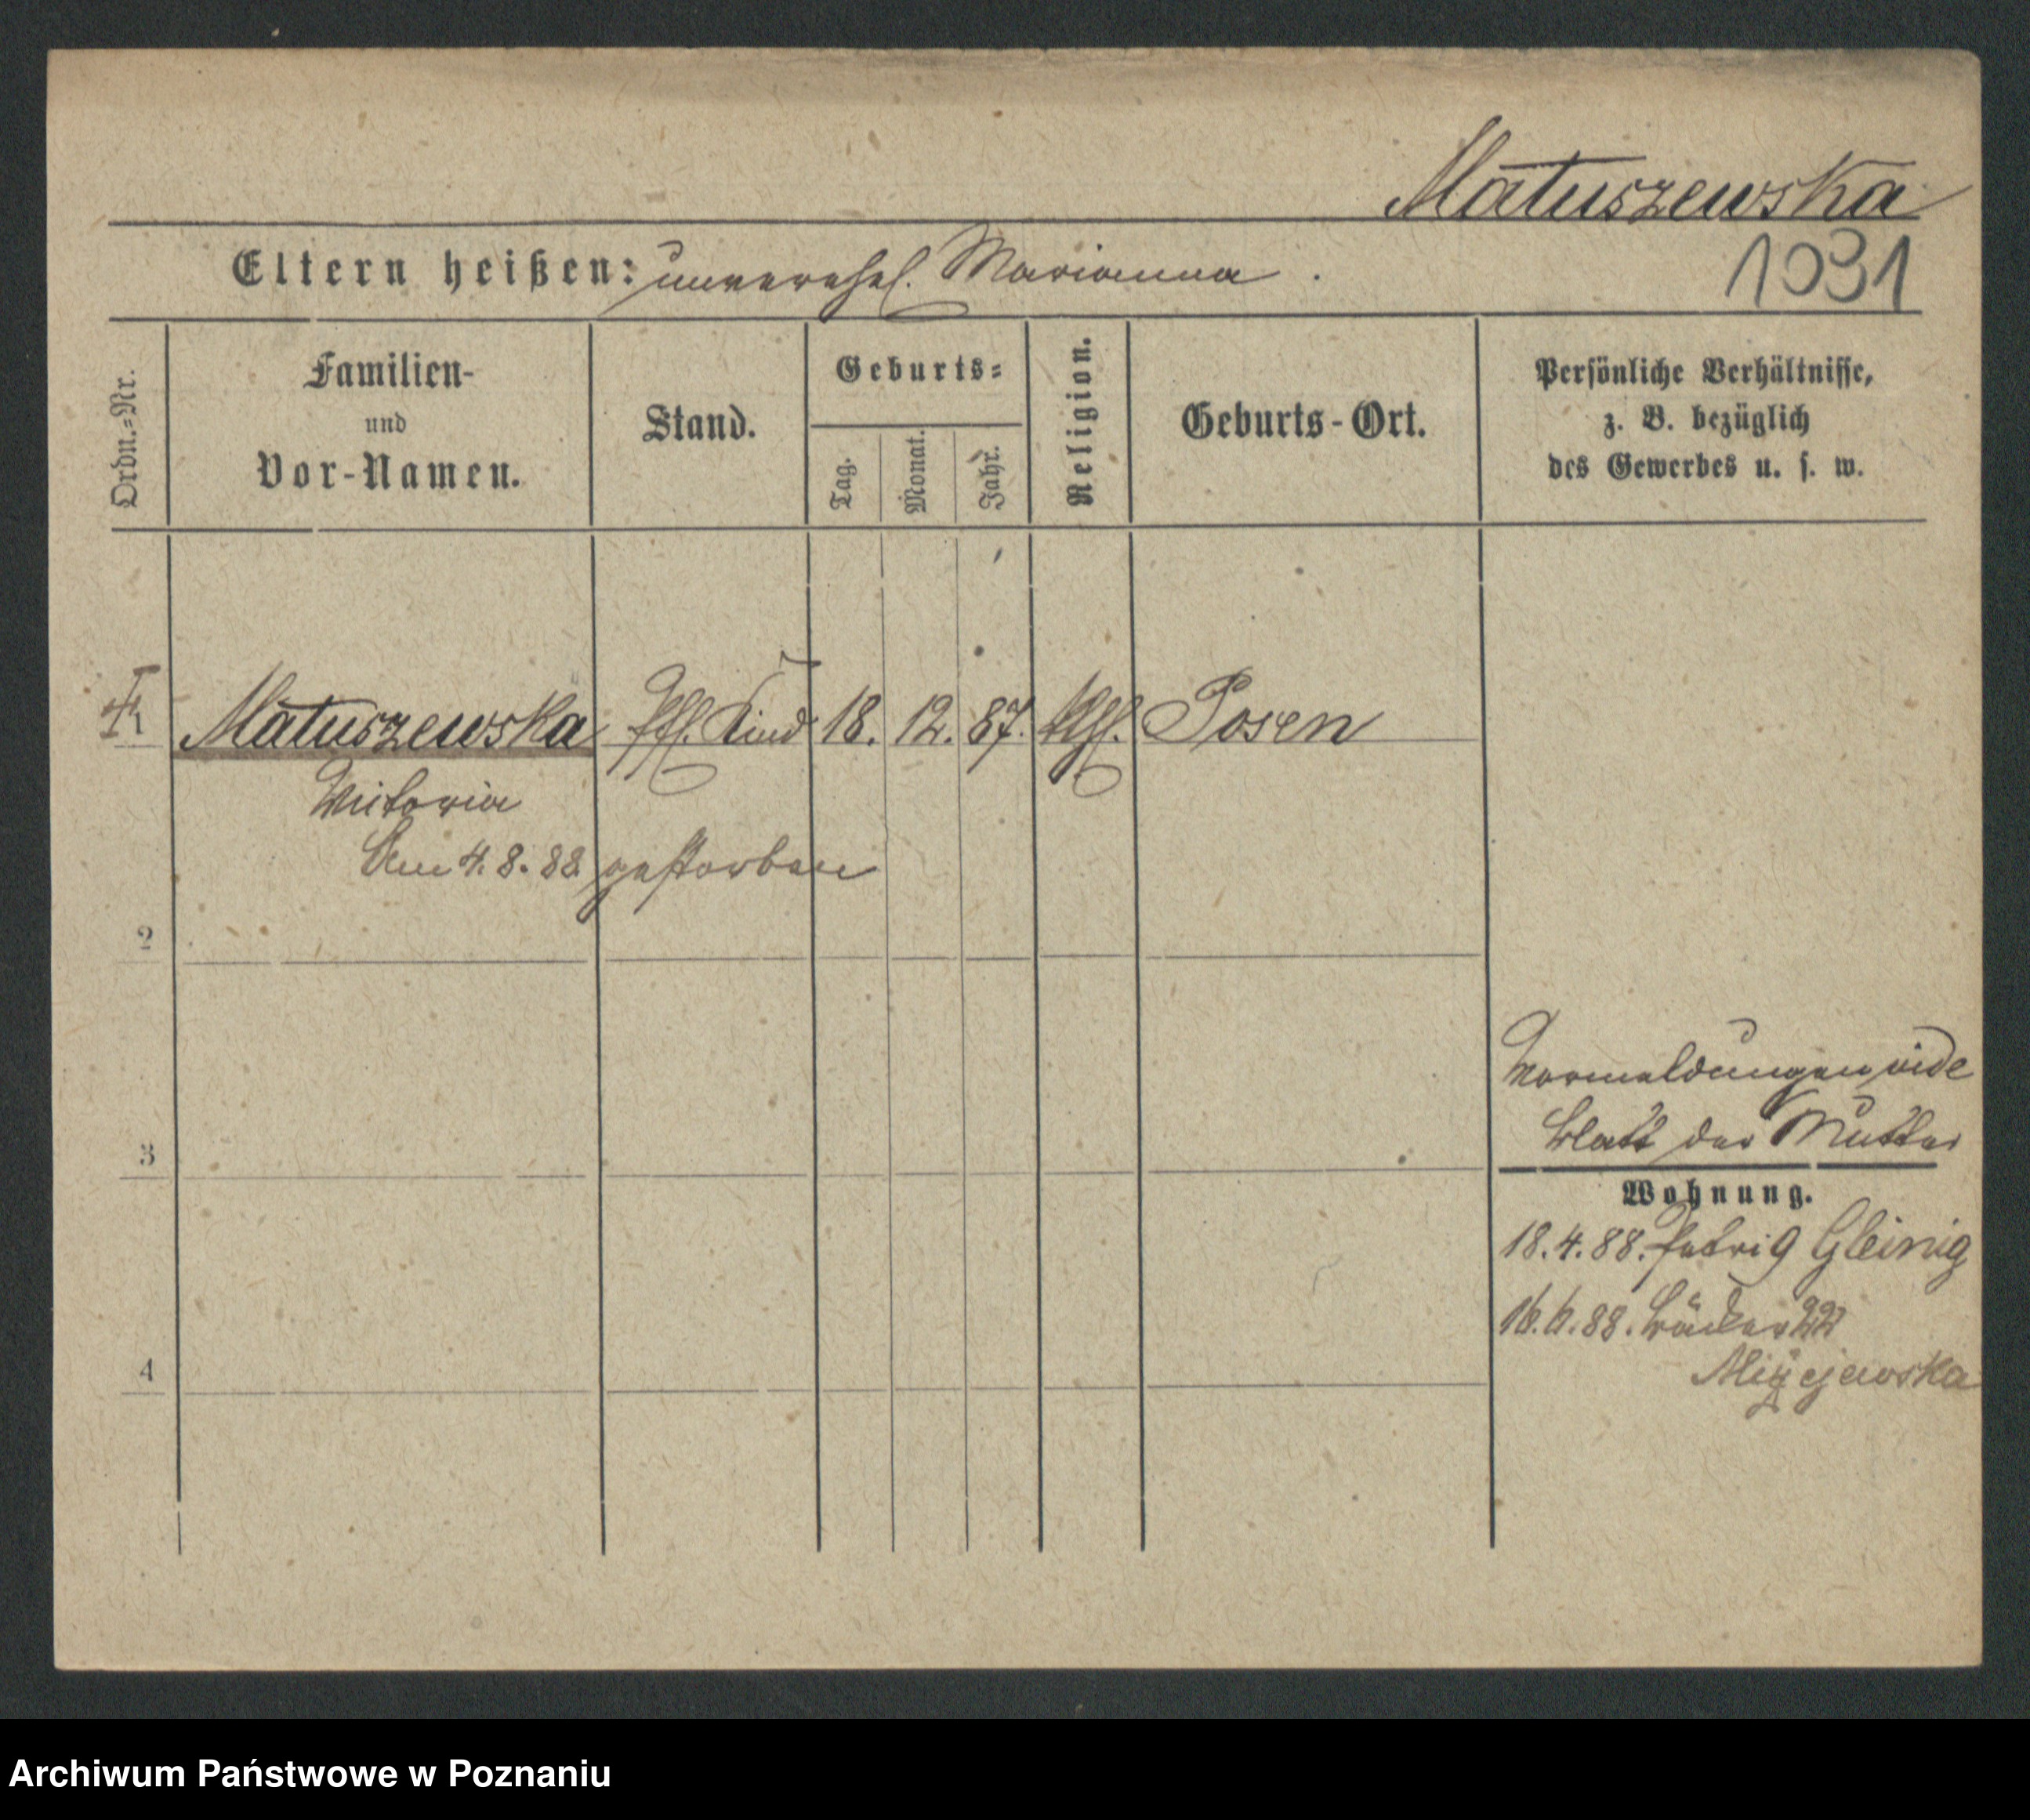 Matuszewska
1031
Eltern heißen: unverehel. Marianna.
Ordn.-Nr.
Familien-
und
Vor-Namen.
Stand.
Geburts=
Tag.
Monat.
Jahr.
Religion.
Geburts-Ort.
Persönliche Verhältnisse,
z. B. bezüglich
des Gewerbes u. s. w.
1 Matuszewska Kind 18. 12. 87. kth. Posen
Victoria
Am 4. 8. 88 gestorben
2
3
4
Vormeldungen vide
Blatt der Mutter
Wohnung.
18. 4. 88. 9 Gleinig
16. 6. 88. Bäcker 22